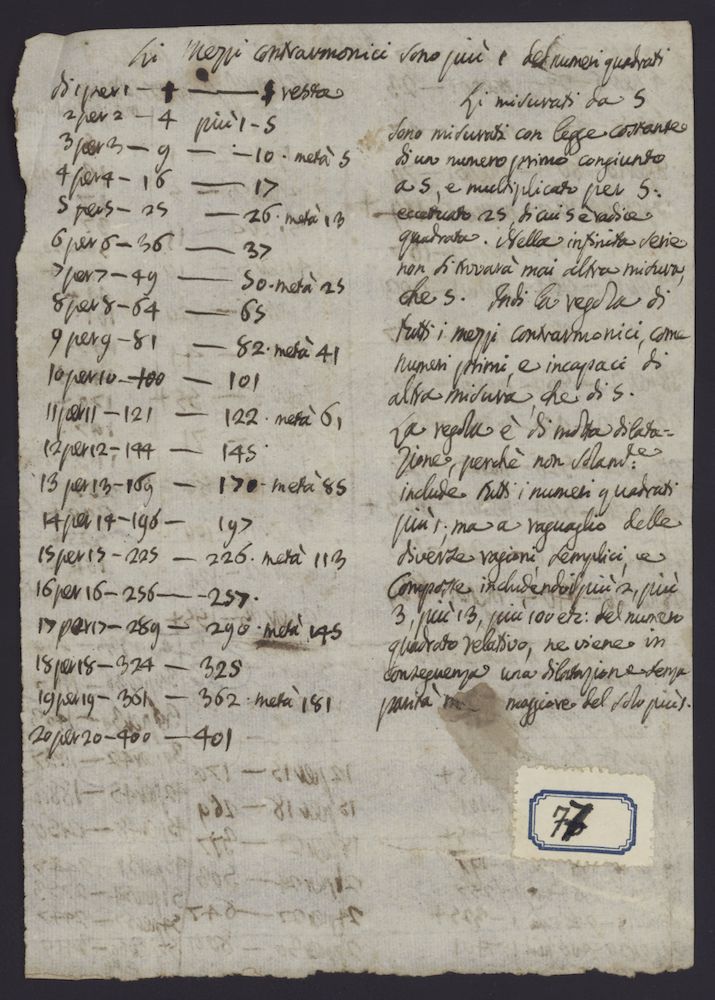 Li mezzi contrarmonici sono più 1 del numeri quadrati
di 1 per 1 — 1 — 1 resta
2 per 2 — 4 più 1 - 5
3 per 3 — 9 — 10 · metà 5
4 per 4 — 16 — 17
5 per 5 — 25 — 26 · metà 13
6 per 6 — 36 — 37
7 per 7 — 49 — 50 · metà 25
8 per 8 — 64 — 65
9 per 9 — 81 — 82 · metà 41
10 per 10 — 100 — 101
11 per 11 — 121 — 122 · metà 61
12 per 12 — 144 — 145
13 per 13 — 169 — 170 · metà 85
14 per 14 — 196 — 197
15 per 15 — 225 — 226 · metà 113
16 per 16 — 256 — 257 ·
17 per 17 — 289 — 290 · metà 145
18 per 18 — 324 — 325
19 per 19 — 361 — 362 · metà 181
20 per 20 — 400 — 401
Li misurati da 5
sono misurati con legge costante
di un numero primo congiunto
a 5, e multiplicato per 5:
eccetuato 25, di cui 5 è radice
quadrata. Nella infinita serie
non si trovarà mai altra misura,
che 5. Indi la regola di
tutti i mezzi contrarmonici, come
numeri primi, e incapaci di
altra misura, che di 5.
La regola è di molta dilata=
zione, perchè non solam.te
include tutti i numeri quadrati
più 1; ma a raguaglio delle
diverse ragioni semplici, e
composte includendovi più 2, più
3, più 13, più 100 etc: del numero
quadrato relativo, ne viene in
conseguenza una dilatazione senza
parità maggiore del solo più 1.
77